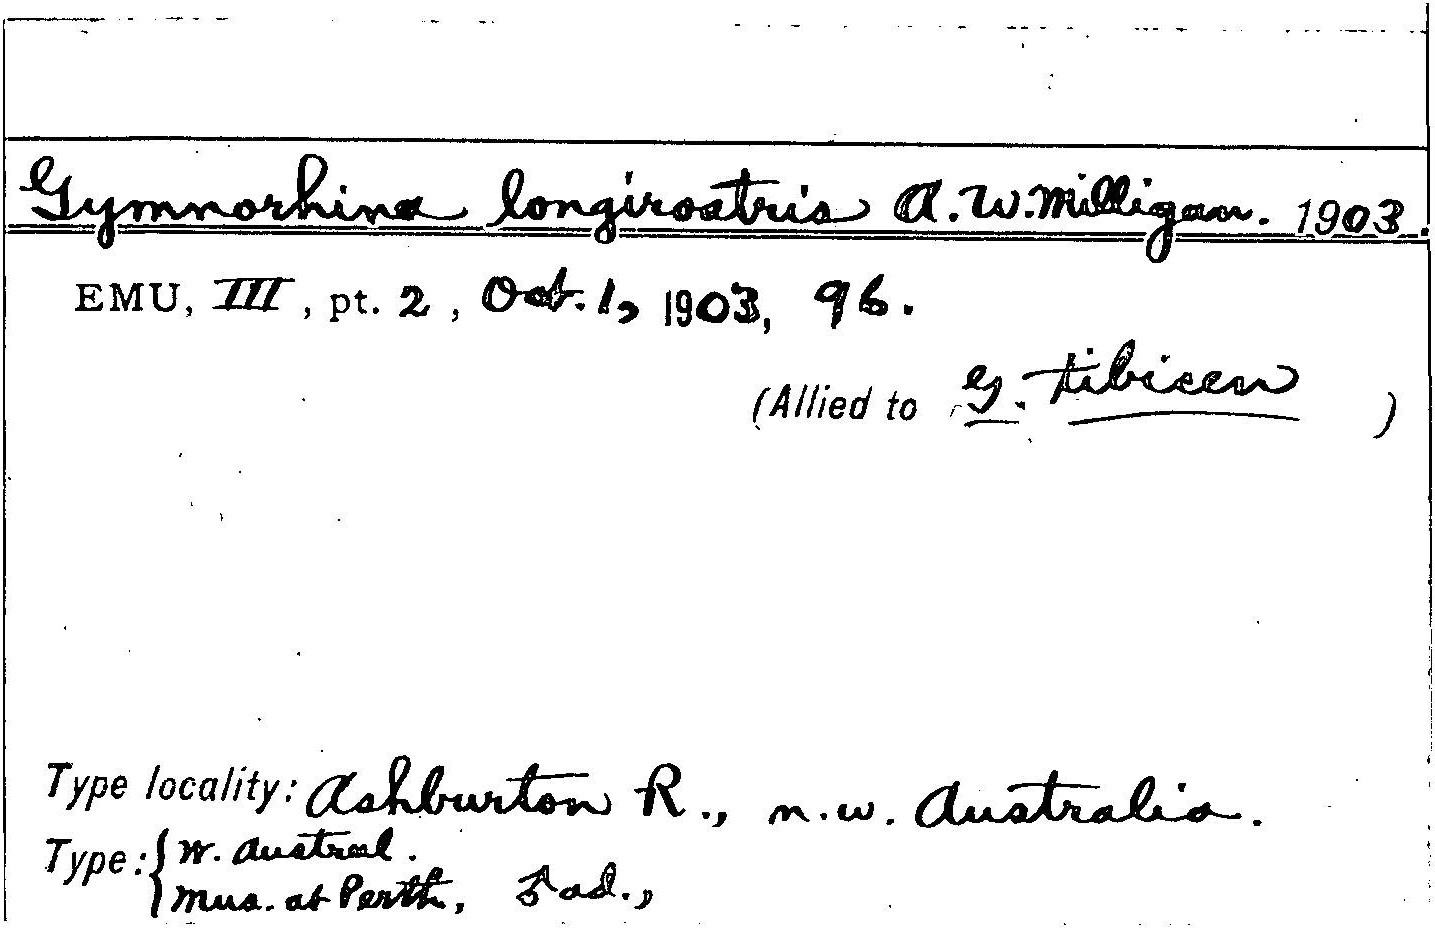 Gymnorhina longirostris A. W. Milligan. 1903.
EMU, III, pt. 2, Oct. 1, 1903, 96.
(Allied to G. tibicen)
Type locality: Ashburton R., n.w. Australia.
Type: { W. Austral.
Mus. at Perth, ad.,